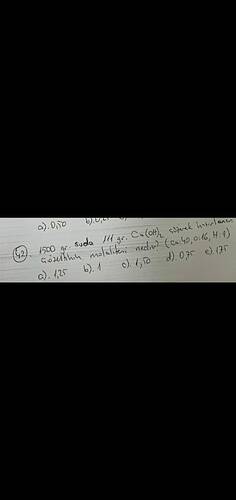 a). 0,50 b). 0,
42. 1500 gr. suda 111 gr. Ca(OH)2 çözerek hazırlanan
çözeltinin molalitesi nedir? (Ca:40, O:16, H:1)
a). 1,25 b). 1 c). 1,50 d). 0,75 e). 1,75